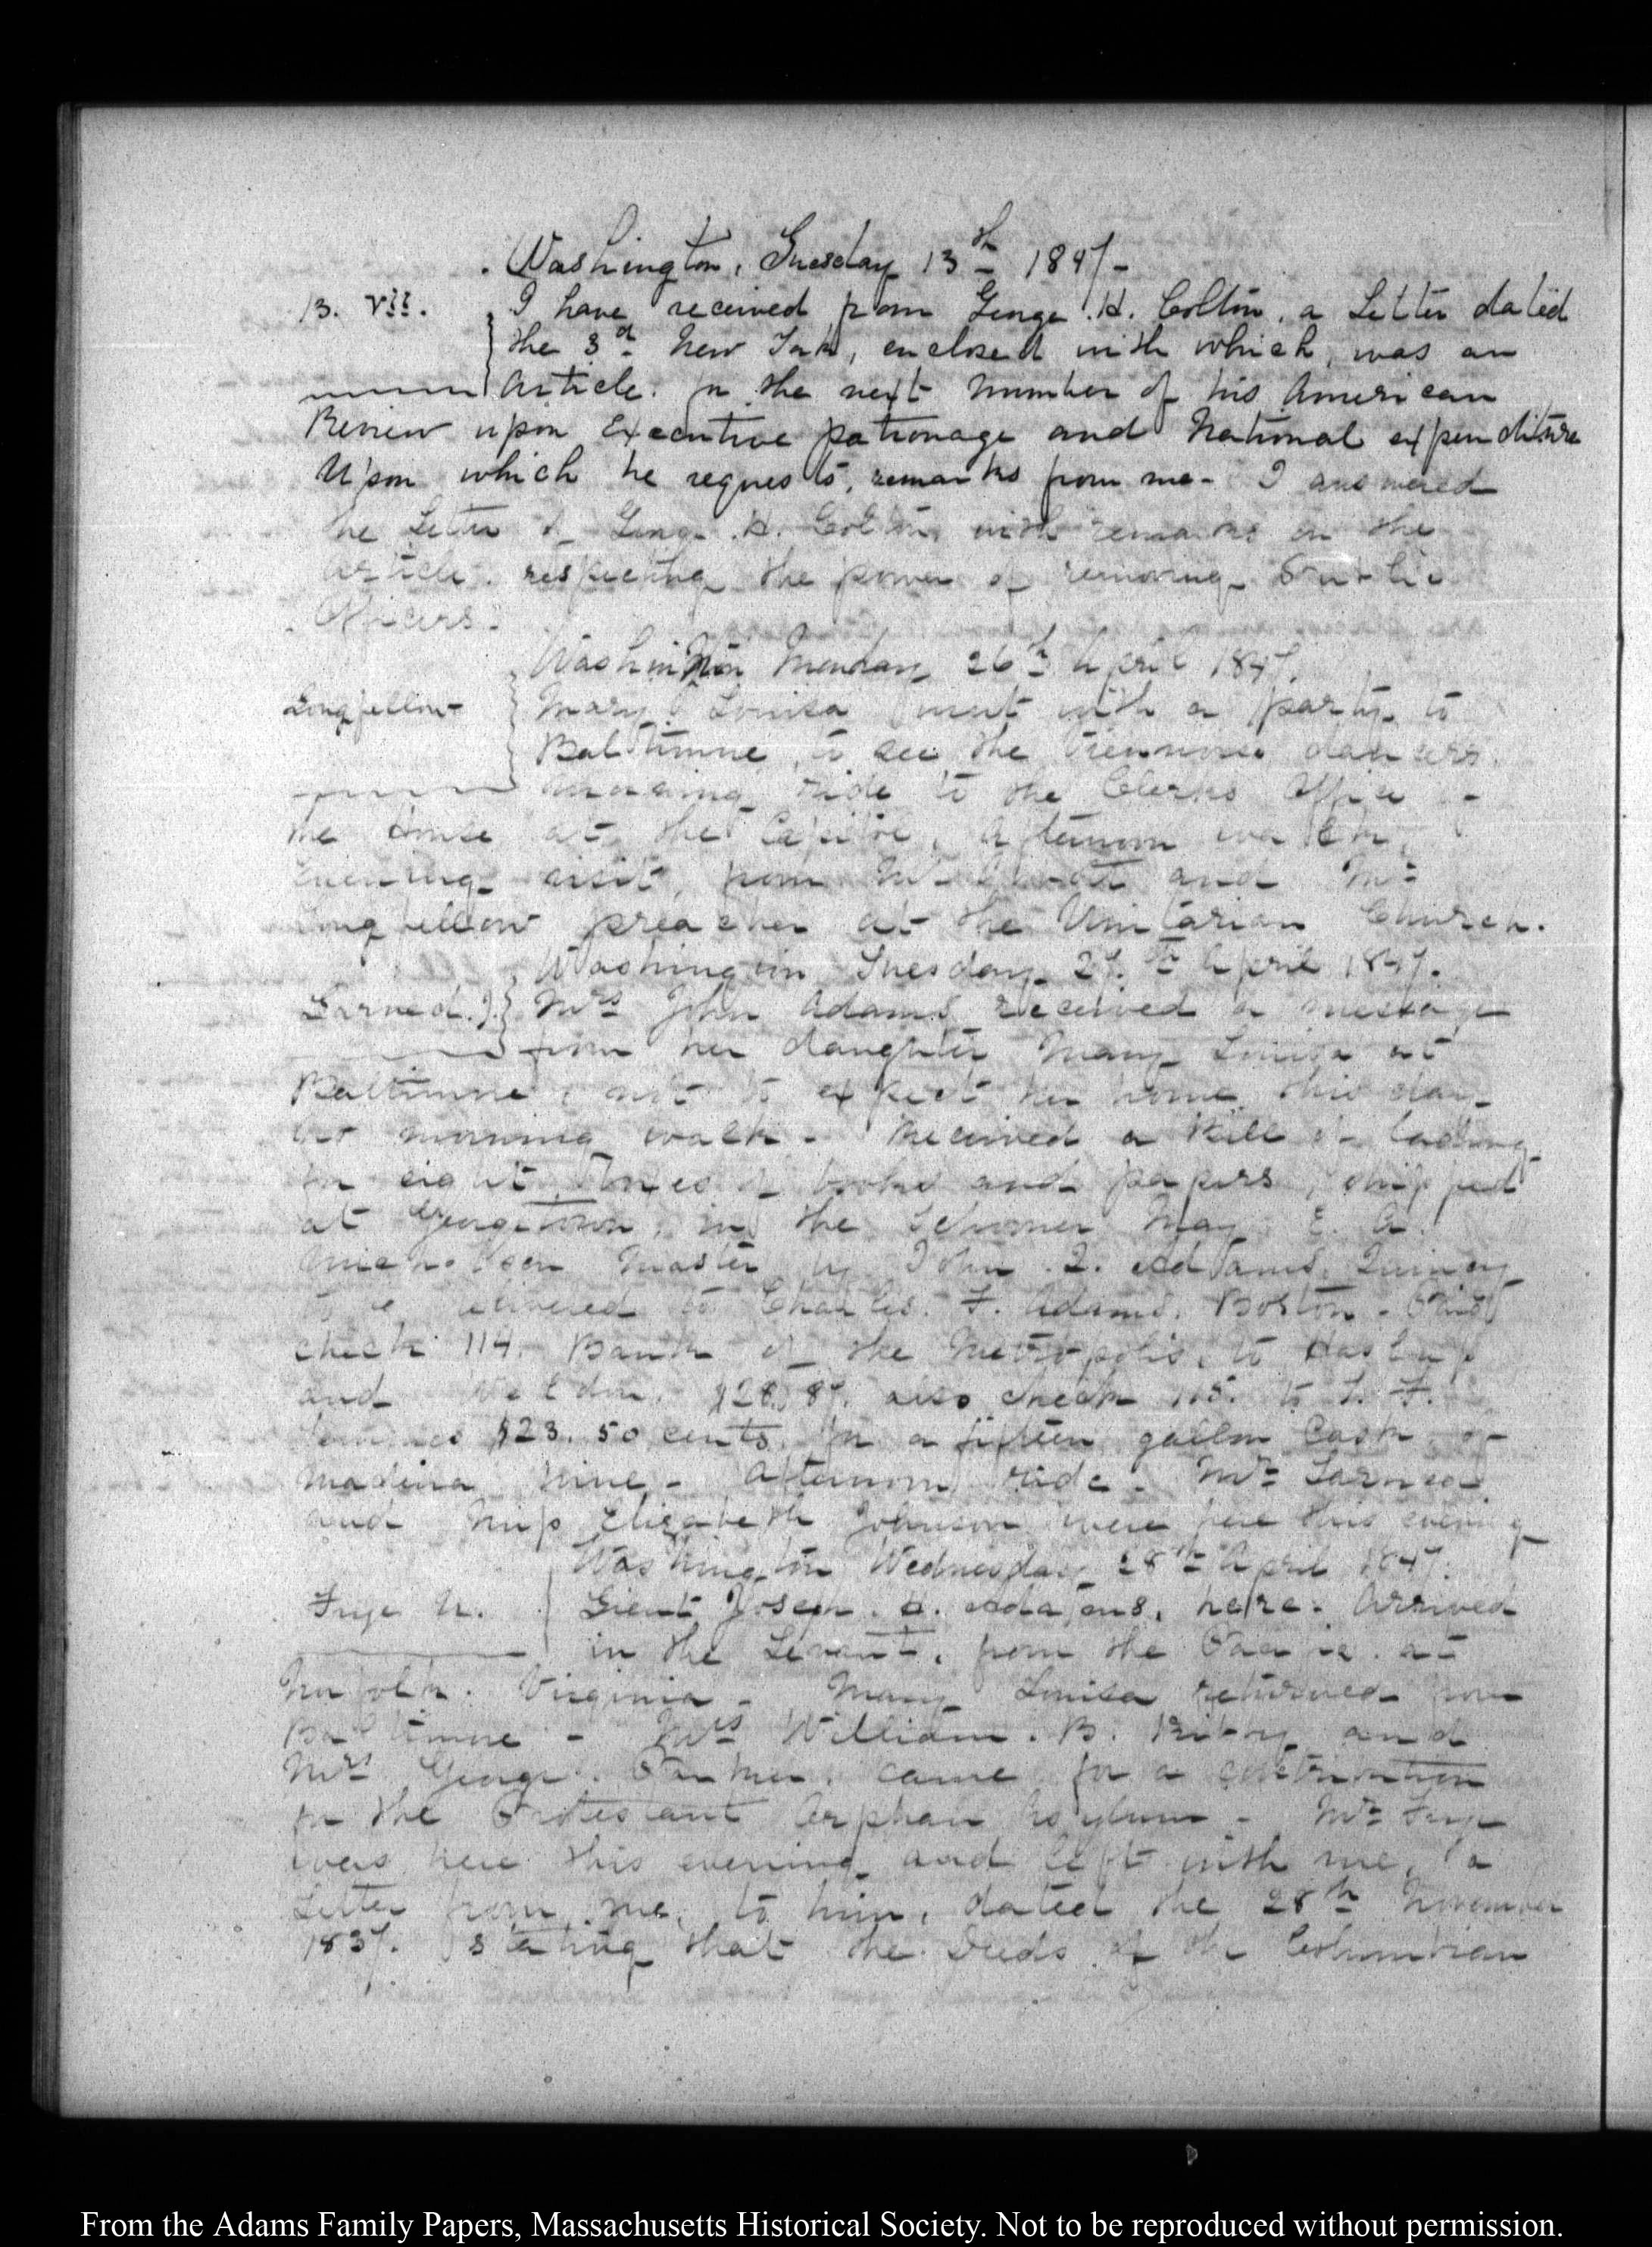 Washington, Tuesday 13th 1847-
13. VII. I have received from George. H. Colton, a Letter dated
the 3d New York, enclosed with which, was an
Article. for the next Number of his American
Review upon Executive patronage and National expenditure
Upon which he requests, remarks from me- I answered
the Letter of George. H. Colton, with remarks on the
Article. respecting the power of removing Public
Officers.
Washington Monday 26th April 1847.
Longfellow Mary Louisa went with a party to
Baltimore, to see the Viennoise dancers.
morning ride to the Clerks Office
the House at the Capitol, afternoon walk,
Evening visit, from Mr and Mr
Longfellow preacher at the Unitarian Church.
Washington Tuesday 27th April 1847.
Larned. J. Mrs John Adams received a message
from her daughter Mary Louisa at
Baltimore, not to expect her home this day
morning walk - Received a Bill of lading
for eight Boxes of books and papers, shipped
at Georgetown, in the Schooner May E. A.
Master by John. Q. Adams, Quincy
to be delivered to Charles. F. Adams. Boston -
check 114. Bank of the Metropolis, to
and $28.87. also check 115. to
$23. 50 cents. for a fifteen gallon Cask of
Madeira wine - Afternoon ride. Mr Larned
and Miss Elizabeth Johnson were here this evening
Washington Wednesday 28th April 1847.
Frye N. Lieut Joseph. H. Adams, here. Arrived
in the Levant, from the Pacific. at
Norfolk. Virginia - Mary Louisa returned from
Baltimore - Mrs William. B. and
Mrs George. came for a contribution
for the Protestant Orphan Asylum - Mr Frye
was here this evening and left with me, a
Letter from me, to him, dated the 28th November
1837. stating that the Deeds of the Columbian
From the Adams Family Papers, Massachusetts Historical Society. Not to be reproduced without permission.